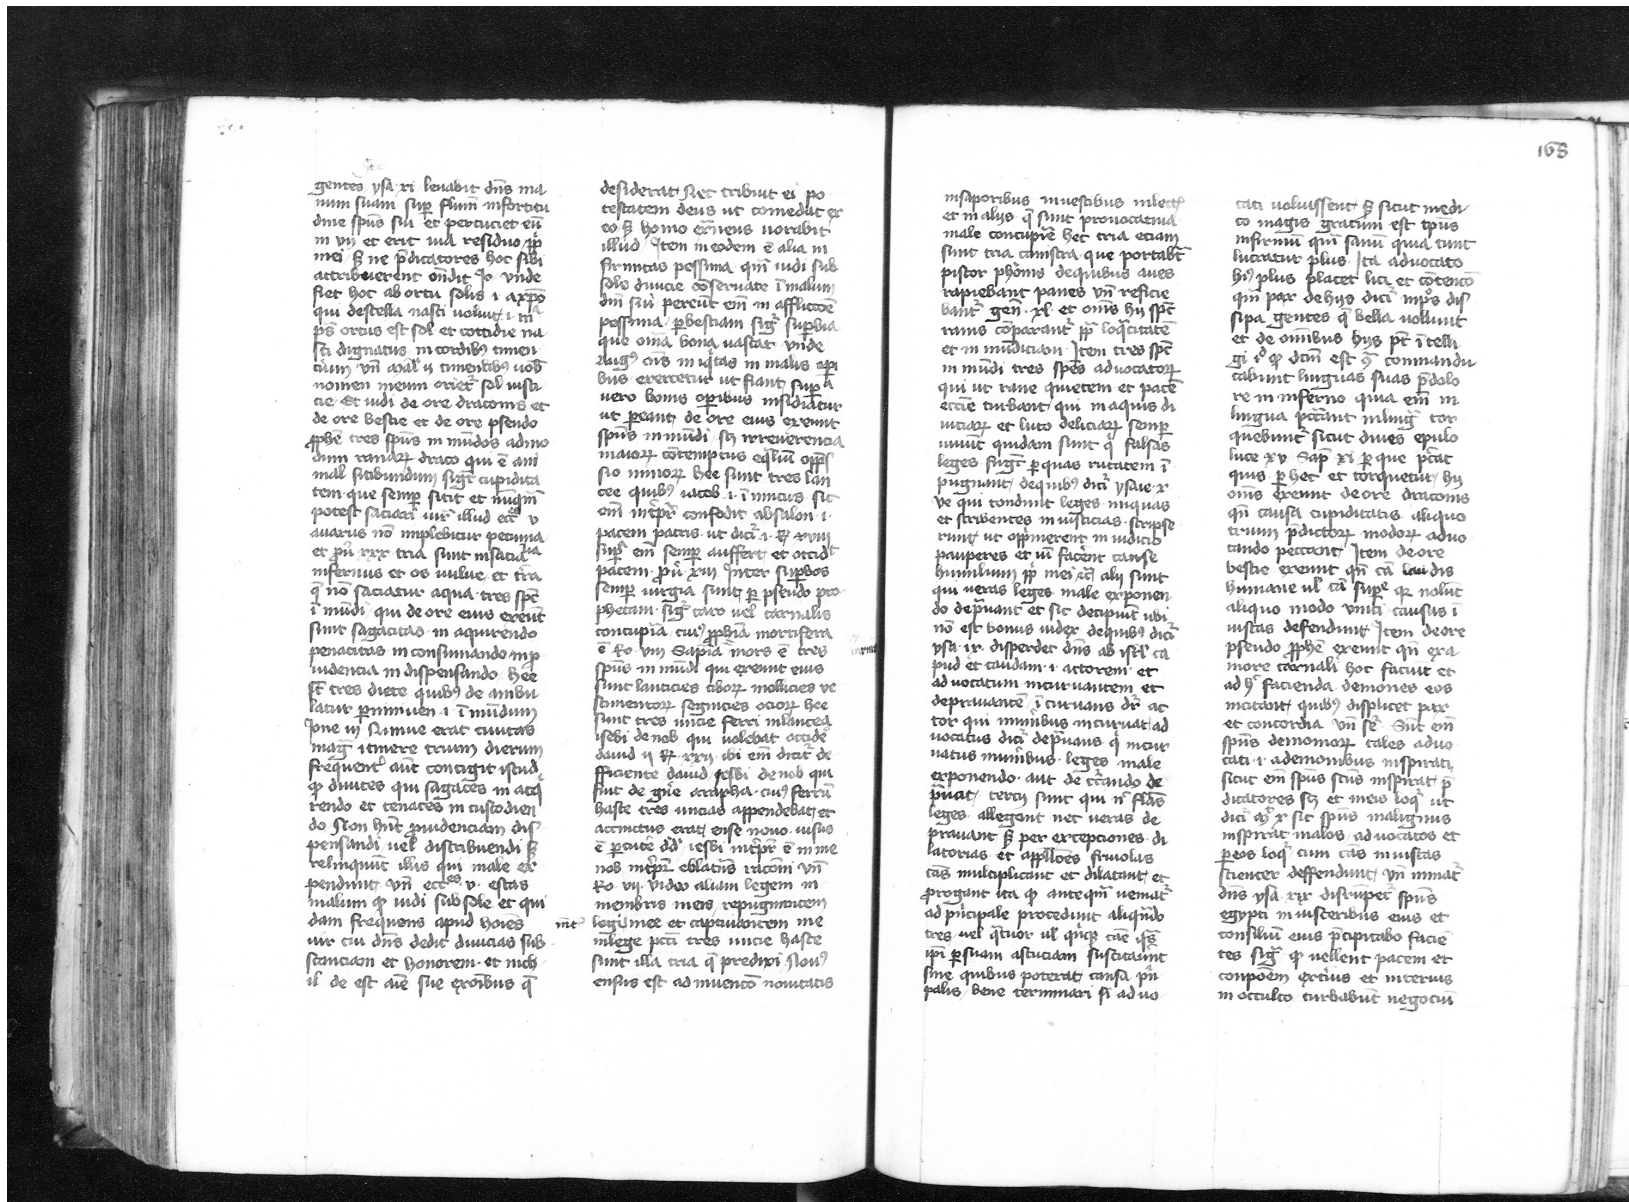 168
gentes ysa xi levabit dn̄s ma
num suam sup̱ flum̄ in fortitu
dine sp̄us sui et percuciet eū
in vii et erit via residuo pp̄l
mei sꝫ ne p̄dicatores hoc sibi
attribuerent on̄dit Jo vnde
fiet hoc ab ortu solis .i. a xp̄o
qui de stella nasci voluit .i. m̄a
ortus est sol et cottidie na
sci dignatus in cordibꝰ timen
cium vn̄ mal ii timentibꝰ vob̄
nomen meum oriet᷑ sol iusti
cie Et vidi de ore draconis et
de ore bestie et de ore pseudo
ꝓphē tres sp̄us in mūdos ad mo
dum ranaꝝ draco qui ē ani
mal sitibundum sigt᷑ cupidita
tem que semp̱ sitit et nūqm̄
potest saciari illud v
avarus nō implebitur pecunia
et ꝓu᷑ xxx tria sunt insaciabilia
infernus et os vulve et t̄ra
q̄ nō saciatur aqua tres sp̄c
ī mūdi qui de ore eius exeūt
sunt sagacitas in aquirendo
tenacitas in consumando inp̱
uidencia in dispensando hee
sē tres diete quibꝰ de ambu
latur ꝑ niniven .i. ī mūdum
Jone iii Ninive erat civitas
mag᷑ itinere trium dierum
frequent᷑ aūt contigit istud
ꝙ divites qui sagaces in acq̇
rendo et tenaces in custodien
do Non hn̄t ꝓuidenciam dis
pensandi vel distribuendi sꝫ
relinquūt illis qui male ex
pendunt vn̄ ecces v. est as
malum ꝙ vidi sub sole et qui
dam frequens apud hoīes
vir cui dn̄s dedit divicias sub
stanciam et honorem et nich
il de est aīe sue ex oībus q̄
desiderat Nec tribuit ei po
testatem deus ut comedat ex
eo sꝫ homo ext̄neus uorabit
illud Item in eodem ē alia in
firmitas pessima qm̄ vidi sub
sole divicie cōservate ī malum
dn̄i sui pereūt em̄ in afflictōe
pessima ꝑ bestiam sigt᷑ supbia
que oīa bona vastat vnde
Augꝰ in iq̇tas in malis opi
bus exercetur ut fiant supbia
vero bonis opibus insidiatur
ut ꝑeant de ore eius exeunt
sp̄us in mūdi scꝫ irreverencia
maioꝝ cōtemptus eq̄lium opp̄s
sio minoꝝ hee sunt tres lan
cee quibꝰ iacob .i. inimicus sic
em̄ int̄pt᷑ confodit absalon .i.
pacem patris ut dict᷑ .i. R xviii
supꝰ em̄ semper auffert et occidit
pacem ꝓu᷑ xiii Inter supbos
semper iurgia sunt ꝑ pseudo pro
phetam sigt᷑ caro vel carnalis
concupīa cuiꝰ ꝓphīa mortifera
ē Ro viii Sapīa mors ē tres
sp̄us in mūdi qui exeunt eius
sunt lauticies ciboꝝ mollicies ve
stimentoꝝ segnicies ocioꝝ hee
sunt tres uncie ferri in lancea
iesbi de nob qui volebat occidē
david ii R xxii ibi em̄ dicit᷑ de
fficiente david iesbi de nob qui
fuit de gn̄e arapha cuiꝰ ferrū
haste tres uncias appendebat et
accinctus erat ense novo visus
ē ꝑcutē dd̄ iesbi int̄pt᷑ ē in me
nob int̄pt᷑ eblacio vn̄
Ro vii video aliam legem in
membris meis repugnantem
legi mee et captivantem me
in lege pcc̄i tres uncie haste
sunt illa tria q̄ predixi Novꝰ
ensis est ad inventō novitatis
in saporibus in vestibus in lectis
et in aliis q̄ sunt provocativa
male concupīe hec tria eciam
sunt tria canistra que portabat
pistor phōnis de quibus aves
rapiebant panes vn̄ reficie
bant᷑ gen̄ xl et om̄s hii sp̄c
ranis cōparant᷑ ꝓpt᷑ loq̄citatē
et in mundiciam Item tres sp̄c
in mūdi tres sp̄es advocatoꝝ
qui ut rane quietem et pacē
ecc̄ie turbant qui in aquis di
viciaꝝ et luto deliciaꝝ semꝑ
vivūt quidam sunt q̇ falsas
leges fingt᷑ ꝑ quas veritatem ī
pugnant de quibꝰ dict᷑ ysaie x
ve qui condunt leges iniquas
et scribentes in iusticias scripse
runt ut opp̄merent in iudicio
pauperes et vī facerent cause
humilium ppl̄i mei alii sunt
qui veras leges male exponen
do depͣvant et sic decipiūt ubi
nō est bonus iudex de quibꝰ dict᷑
ysa ix disperdet dn̄s ab isrl̄ ca
pud et caudam .i. actorem et
ad vocatum incurvantem et
depravantē ī curvans dr̄ ac
tor qui munibus incurvat ad
vocatus dict᷑ depͣvans q̇ incur
vatus munibus leges male
exponendo aut de
pͣvat tercii sunt qui n̄ fl̄as
leges allegant nec veras de
pravant sꝫ per excepciones di
latorias et appll̄oēs frivolas
cās multiplicant et dilatant et
ꝓrogant ita ꝙ antequam veniat᷑
ad pͥncipale procedunt aliqn̄do
tres vel q̄tuor vl qͥnqꝫ cāe qͣs
ip̄i ꝑ suam astuciam suscitavūt
sine quibus poterat causa pͥnci
palis bene terminari si advo
cati voluissent sꝫ sicut medi
co magis gratum est tp̄us
infirmū qm̄ sanū quia tunc
lucratur plus Ita advocato
hiꝰ plus placet lici et cōtencō
qm̄ pax de hiis dict᷑ in pͣs dis
sipa gentes q̄ bella volunt
et de om̄ibus hiis pt̄ ītelli
gi iᵒ ꝙ dc̄m est ꝙ commandu
cabunt linguas suas p̄ dolo
re in inferno quia em̄ in
lingua pcc̄ant in lingua tor
quebunt᷑ sicut dives epulo
luce xv Sap̄ xi ꝑ que pcc̄at
quis ꝑ hec et torquetur hii
om̄s exeunt de ore draconis
qn̄ causa cupiditatis aliquo
trium p̄dictoꝝ modoꝝ advo
cando peccant Item de ore
bestie exeunt qn̄ cā lau dis
humane vl cā supͤ qꝫ nolūt
aliquo modo vinci causas ī
iustas defendunt Item de ore
pseudo ꝓphē exeunt qn̄ ex a
more carnali hoc faciūt et
ad hͦ facienda demones eos
incitant quibꝰ displicet pax
et concordia Sūt em̄
sp̄us demonioꝝ tales advo
cati .i. a demonibus inspirati
sicut em̄ sp̄us scūs inspirat p̄
dicatores scꝫ et in eis loqt᷑ ut
dict᷑ x sic sp̄us malignus
inspirat malos advocatos et
ꝑ eos loqt᷑ cum cās iniustas
scienter deffendunt vn̄ minat᷑
dn̄s ysa xix disrūpet᷑ sp̄us
egypti in visceribus eius et
consiliū eius p̄cipitabo facie
tes sigt᷑ ꝙ vellent pacem et
conpōem exterius et interius
in occulto turbabūt negociū